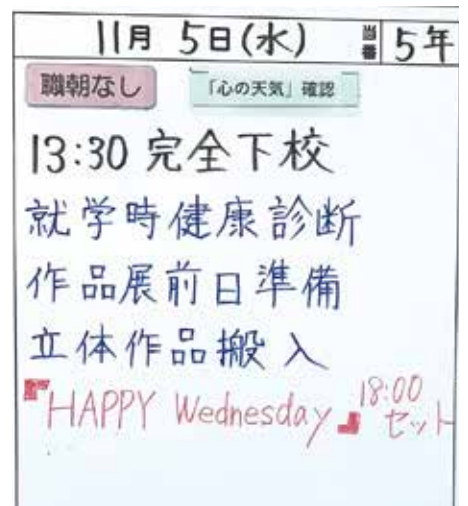 11月 5日(水) 当番 5年
職朝なし 「心の天気」確認
13:30 完全下校
就学時健康診断
作品展前日準備
立体作品搬入
『HAPPY Wednesday』 18:00 セット